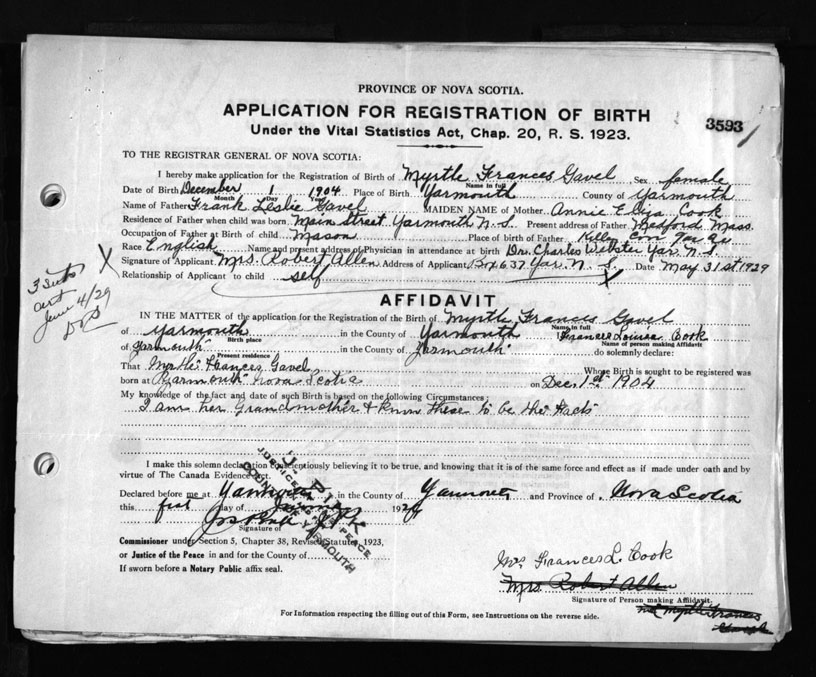 PROVINCE OF NOVA SCOTIA.
APPLICATION FOR REGISTRATION OF BIRTH
3593
Under the Vital Statistics Act, Chap. 20, R. S. 1923.
TO THE REGISTRAR GENERAL OF NOVA SCOTIA:
I hereby make application for the Registration of Birth of Myrtle Frances Gavel Sex female
Name in full
Date of Birth December 1 1904 Place of Birth Yarmouth County of Yarmouth
Month Day Year
Name of Father Frank Leslie Gavel MAIDEN NAME of Mother Annie Eliza Cook
Residence of Father when child was born Main Street Yarmouth N.S. Present address of Father Medford Mass.
Occupation of Father at Birth of child Mason Place of birth of Father
Race English Name and present address of Physician in attendance at birth Dr. Charles Webster Yar. N.S.
Signature of Applicant Mrs. Robert Allen Address of Applicant Box 637 Yar. N. S. Date May 31st 1929
Relationship of Applicant to child self X
X
3
cert
June 4/29
AFFIDAVIT
IN THE MATTER of the application for Registration of the Birth of Myrtle Frances Gavel
Name in full
of Yarmouth in the County of Yarmouth I Frances Louisa Cook
Birth place Name of person making Affidavit
of Yarmouth in the County of Yarmouth do solemnly declare:
Present residence
That Myrtle Frances Gavel Whose Birth is sought to be registered was
born at Yarmouth Nova Scotia on Dec. 1st 1904
My knowledge of the fact and date of such Birth is based on the following Circumstances:
I am her Grandmother & know these to be the facts
I make this solemn declaration conscientiously believing it to be true, and knowing that it is of the same force and effect as if made under oath and by
virtue of The Canada Evidence Act.
Declared before me at Yarmouth in the County of Yarmouth and Province of Nova Scotia
this first day of 192
Signature of
J. PINK
JUSTICE OF THE PEACE
COUNTY OF YARMOUTH
Commissioner under Section 5, Chapter 38, Revised Statutes, 1923,
or Justice of the Peace in and for the County of
If sworn before a Notary Public affix seal.
Mrs Frances L. Cook
Mrs Robert Allen
Signature of Person making Affidavit.
Myrtle Frances
For Information respecting the filling out of this Form, see Instructions on the reverse side.